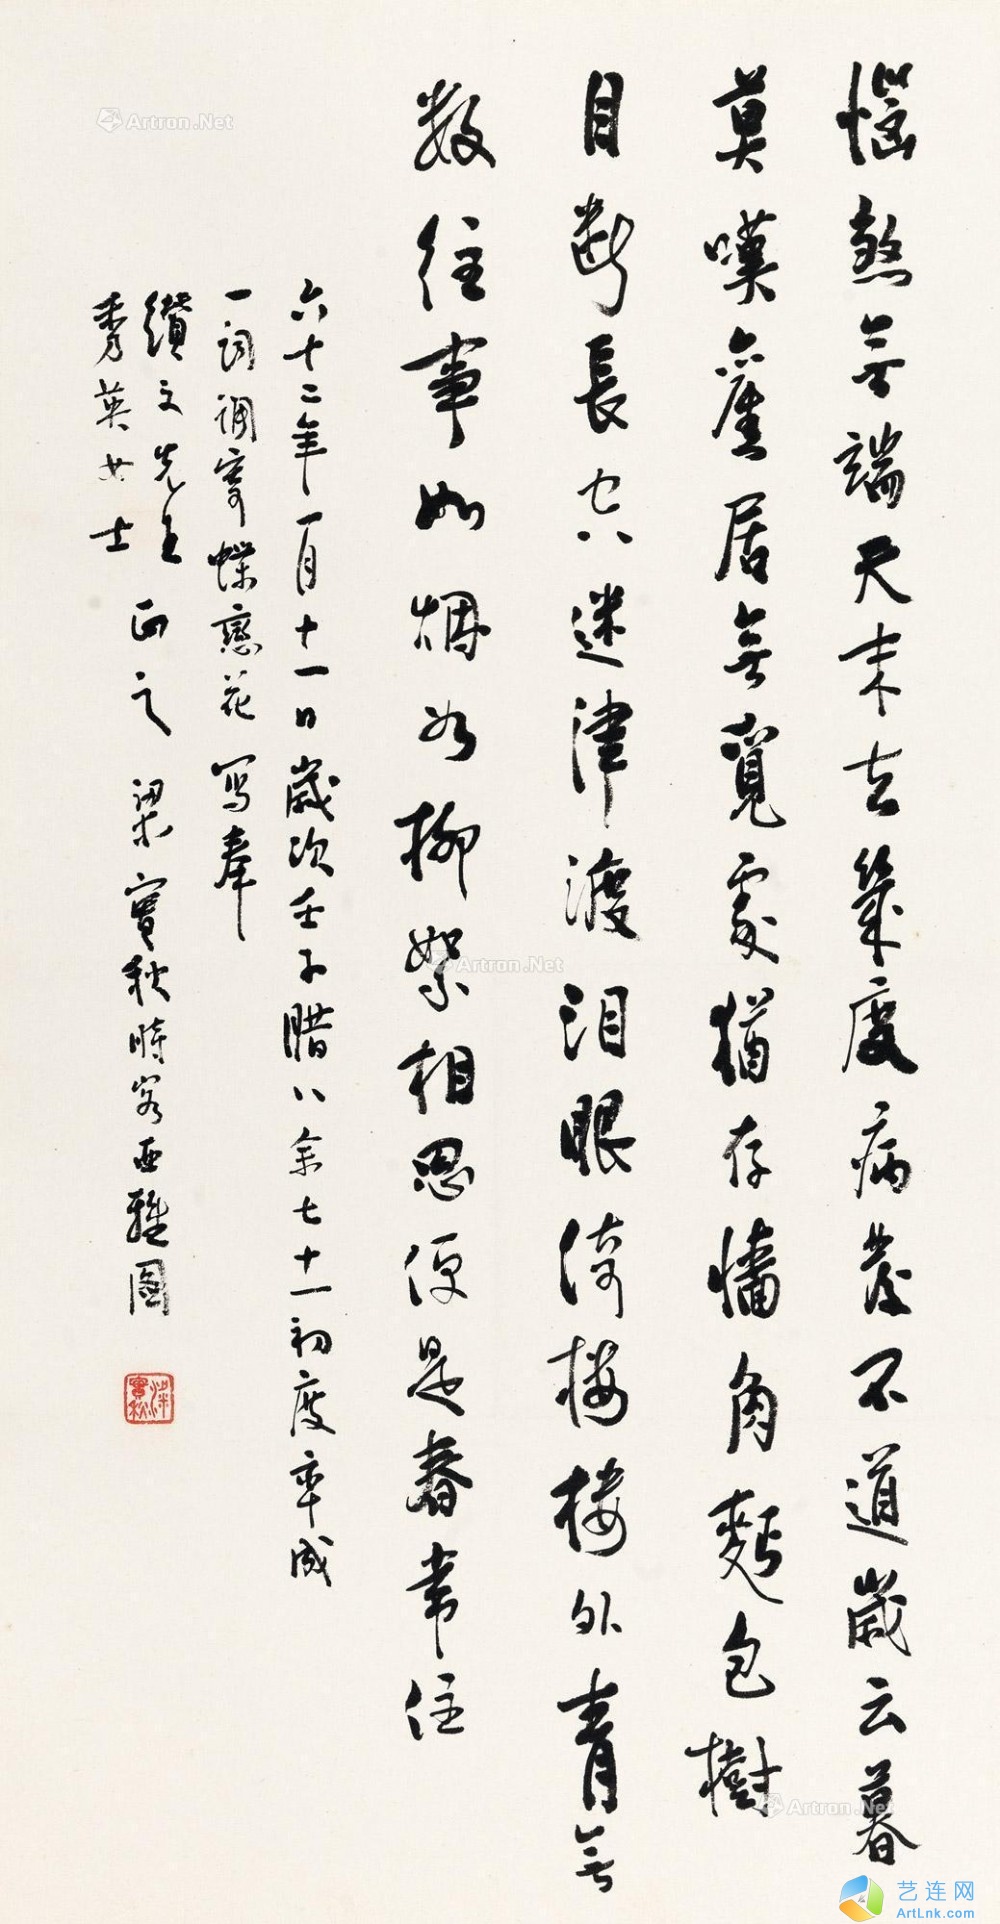 惱煞無端天末去幾度病發不道歲云暮
莫嘆舊居無覓處猶存墻角麪包樹
目斷長空迷津渡泪眼倚樓樓外青無
數往事如烟如柳絮相思便是春常住
六十二年一月十一日歲次壬子腊八余七十一初度率成
一詞調寄蝶戀花寫奉
纘文先生
秀英女士
正之 梁實秋時客西雅圖
梁實秋
Artron.Net
Artron.Net
Artron.Net
艺连网
ArtLnk.com